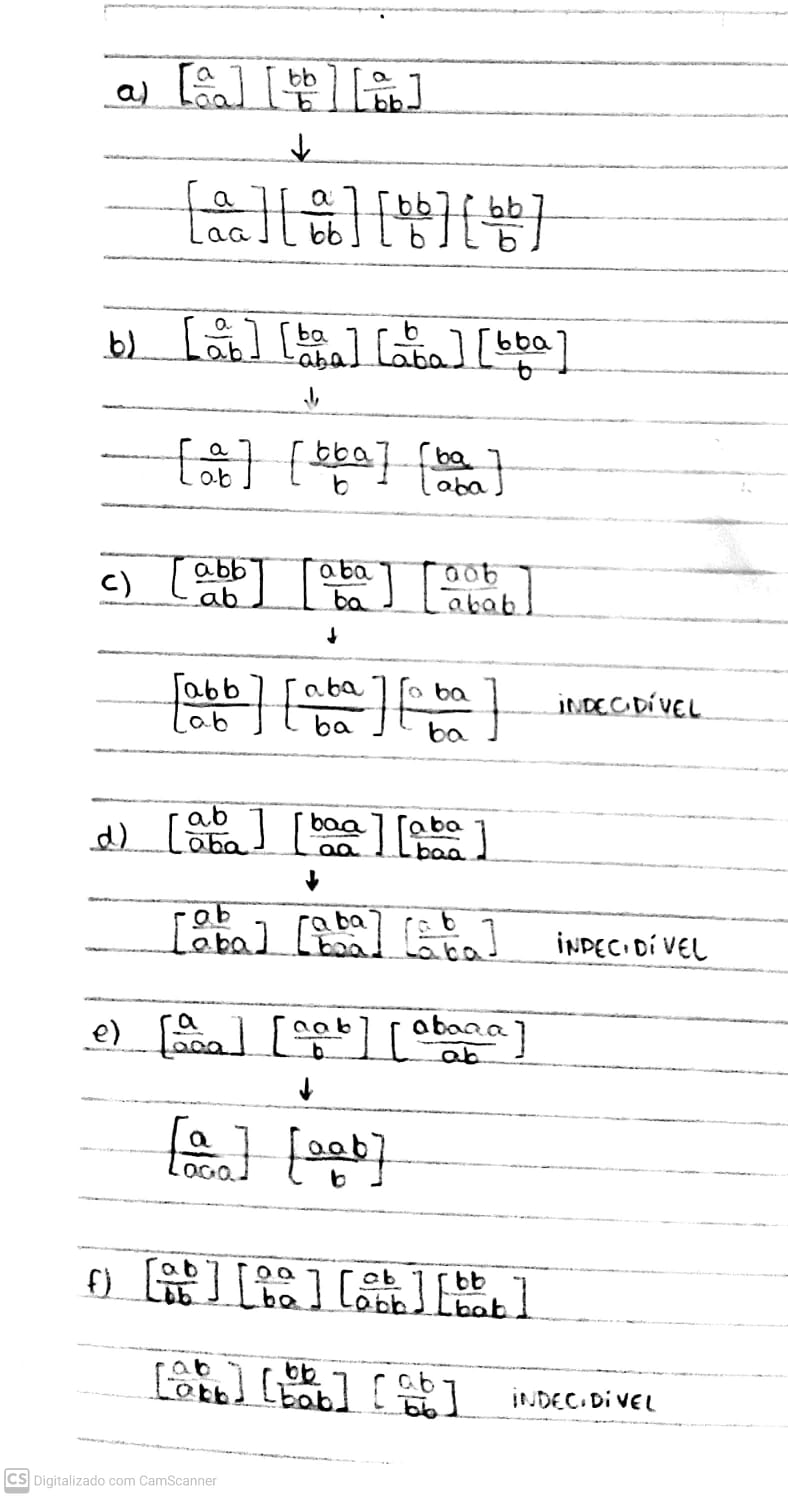 a) [a/aa] [bb/b] [a/bb]
↓
[a/aa] [a/bb] [bb/b] [bb/b]
b) [a/ab] [ba/aba] [b/aba] [bba/b]
↓
[a/ab] [bba/b] [ba/aba]
c) [abb/ab] [aba/ba] [aab/abab]
↓
[abb/ab] [aba/ba] [aba/ba] INDECIDÍVEL
d) [ab/aba] [baa/aa] [aba/baa]
↓
[ab/aba] [aba/baa] [ab/aba] INDECIDÍVEL
e) [a/aaa] [aab/b] [abaaa/ab]
↓
[a/aaa] [aab/b]
f) [ab/bb] [aa/ba] [ab/abb] [bb/bab]
[ab/abb] [bb/bab] [ab/bb] INDECIDIVEL
CS Digitalizado com CamScanner